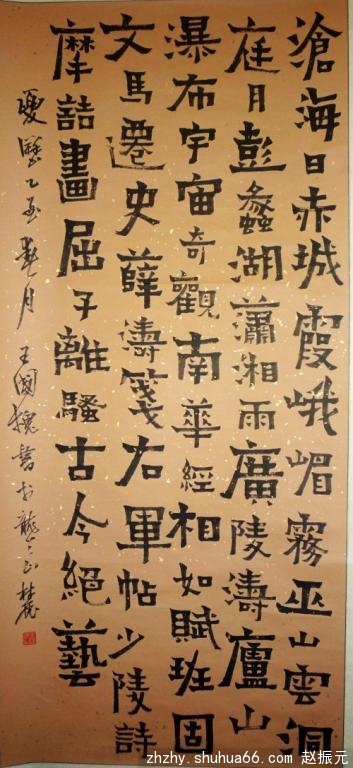 滄海日赤城霞峨嵋霧巫山雲洞
庭月彭蠡湖瀟湘雨廣陵濤廬山
瀑布宇宙奇觀南華經相如賦班固
文馬遷史薛濤箋右軍帖少陵詩
摩詰畫屈子離騷古今絕藝
夏曆乙酉春月王國書於龍山
zhzhy.shuhua66.com 赵振元